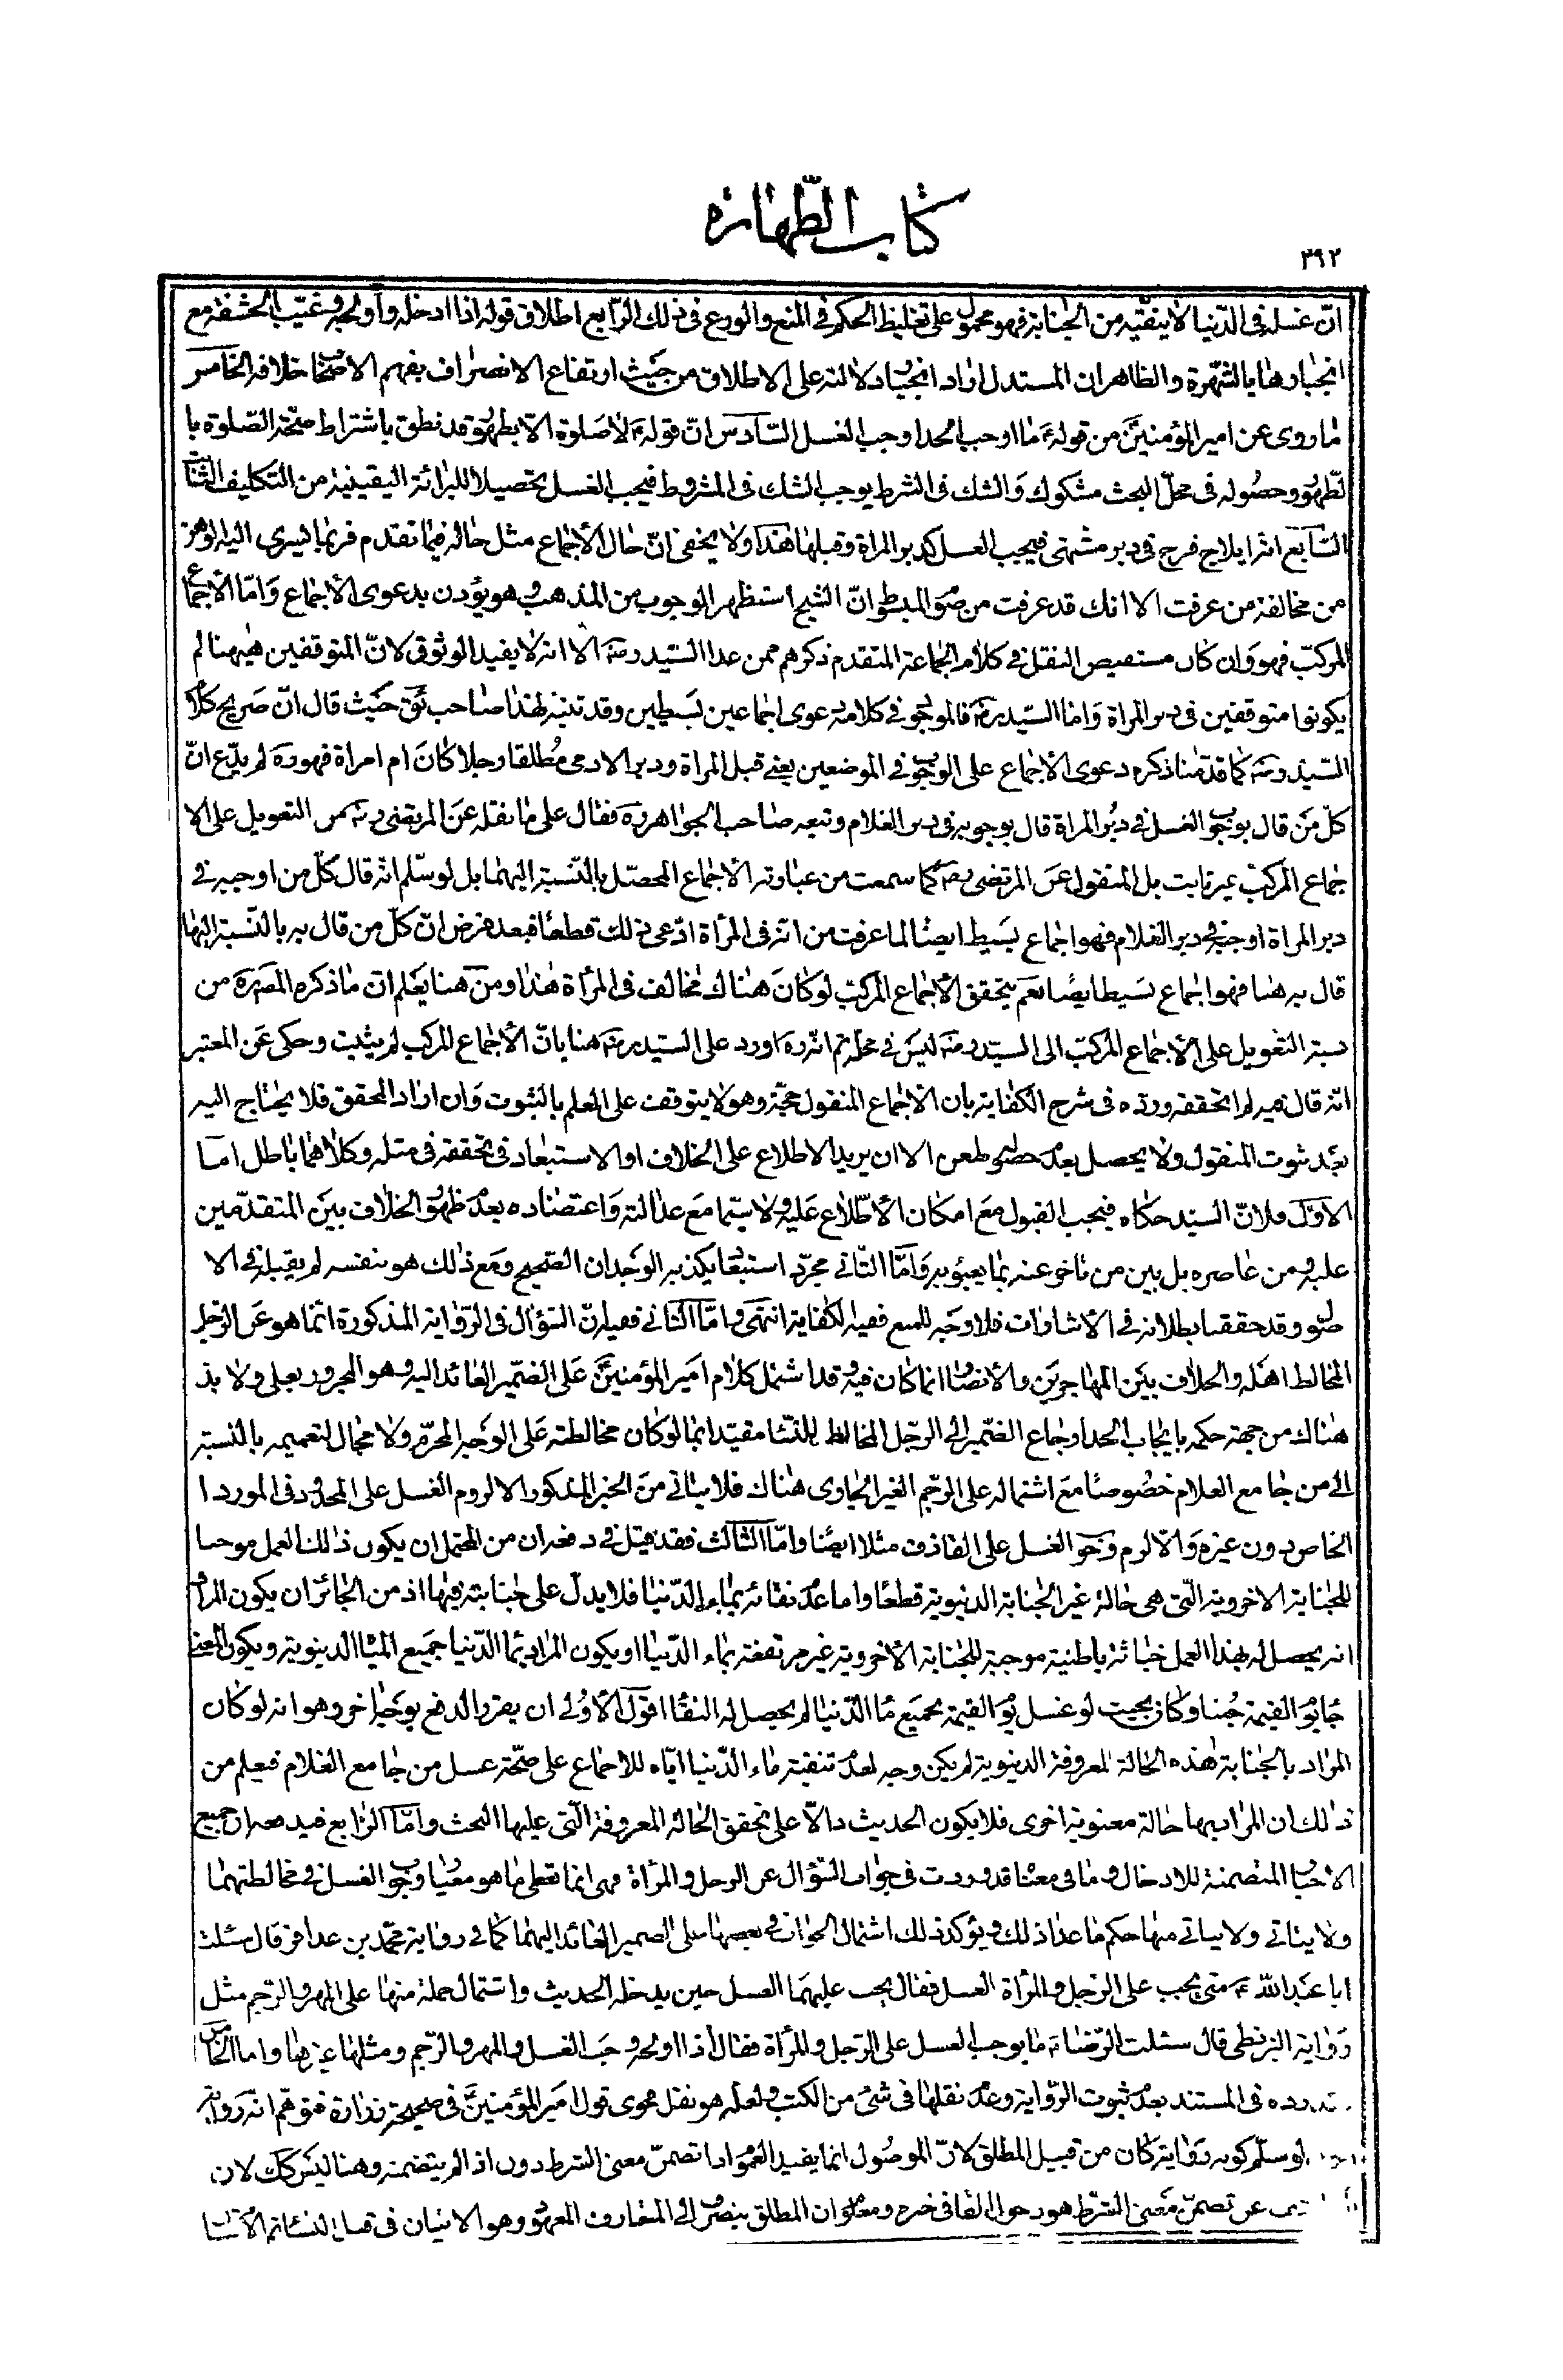 كتاب الطهارة
٣٩٢
انّ غسله فى الدّنيا لا ينقّيه من الجنابة فهو محمول على تغليظ الحكم فى المنع والورع فى ذلك الرّابع اطلاق قوله اذا ادخله و اولجه و غيّب الحشفة مع
انجبارهما بالشّهرة و الظاهر ان المستدل اراد انجبار دلالته على الاطلاق من حيث ارتفاع الانصراف بفهم الاصحاب خلافه الخامس
ما روى عن امير المؤمنينؑ من قولهؑ ما اوجب الحد اوجب الغسل السّادس انّ قولهؑ لا صلوة الا بطهور قد نطق باشتراط صحّة الصّلوة با
لطّهور و حصوله فى محلّ البحث مشكوك و الشك فى الشرط يوجب الشك فى المشروط فيجب الغسل تحصيلا للبرائة اليقينية من التكليف الثابت
السّابع انّه ايلاج فرج فى دبر مشتهى فيجب الغسل كدبر المراة و قبلها هذا و لا يخفى انّ حال الأجماع مثل حاله فيما تقدم فربما يسرى اليه الوهن
من مخالفة من عرفت الا انك قد عرفت من ضو المبسوط انّ الشيخ استظهر الوجوب من المذهب و هو يؤذن بدعوى الأجماع و امّا الأجماع
المركّب فهو و ان كان مستفيض النقل فى كلام الجماعة المتقدم ذكرهم ممن عدا السّيد ره الا انه لا يفيد الوثوق لانّ المتوقفين هيهنا لم
يكونوا متوقفين فى دبر المراة و امّا السّيد ره فالموجود فى كلامه دعوى اجماعين بسيطين و قد تنبّه لهذا صاحب ئق حيث قال انّ صريح كلام
السّيد ره كما قدّمنا ذكره دعوى الأجماع على الوجوب فى الموضعين يعنى قبل المراة و دبر الادمى مطلقا رجلا كان ام امراة فهو ره لم يدّع انّ
كلّ من قال بوجوب الغسل فى دبر المراة قال بوجوبه فى دبر الغلام و تبعه صاحب الجواهر ره فقال على ما نقله عن المرتضى ره من التعويل على الا
جماع المركّب غير ثابت بل المنقول عن المرتضى ره كما سمعت من عبارته الأجماع المحصّل بالنّسبة اليهما بل لو سلّم انه قال كلّ من اوجبه فى
دبر المراة اوجبه فى دبر الغلام فهو اجماع بسيط ايضا لما عرفت من انّه فى المرأة ادّعى ذلك قطعا فبعد فرض انّ كلّ من قال به بالنّسبة اليها
قال به هنا فهو اجماع بسيط ايضا نعم يتحقق الأجماع المركّب لو كان هناك مخالف فى المرأة هذا و من هنا يعلم انّ ما ذكره المصره من
نسبة التعويل على الأجماع المركّب الى السيّد ره ليس فى محلّه ثم انّه ره اورد على السيّد ره هنا بانّ الأجماع المركّب لم يثبت و حكى عن المعتبر
انّه قال فيه لم اتحققه و ردّه فى شرح الكفاية بان الأجماع المنقول حجّة و هو لا يتوقف على العلم بالثبوت و ان اراد المحقق فلا يحتاج اليه
بعد ثبوت المنقول و لا يحصل بعدم طعن الا ان يريد الاطلاع على الخلاف او الاستبعاد فى تحققه فى مثله و كلاهما باطل امّا
الاوّل فلانّ السيّد حكاه فيجب القبول مع امكان الأطّلاع عليه و لا سيّما مع عدالته و اعتضاده بعدم ظهور الخلاف بين المتقدّمين
عليه و من عاصره بل بين من تاخر عنه بما يعبؤ به و امّا الثّانى مجرّد استبعاد يكذبه الوجدان الصّحيح و مع ذلك هو بنفسه لم يقبله فى الا
صول و قد حققنا بطلانه فى الأشارات فلا وجه للمنع ففيه الكفاية انتهى و امّا الثّانى ففيه انّ السّؤال فى الرّواية المذكورة انّما هو عن الرّجل
المخالط اهله و الخلاف بين المهاجرين و الأنصار انما كان فيه و قد اشتمل كلام امير المؤمنينؑ على الضّمير العائد اليه و هو المجرور بعلى و لا بدّ
هناك من جهة حكمه بايجاب الحد ارجاع الضّمير الى الرّجل المخالط للنّسا مقيّدا بما لو كان مخالطته على الوجه المحرّم و لا مجال لتعميمه بالنسبة
الى من جامع الغلام خصوصا مع اشتماله على الرّجم الغير الجارى هناك فلا يتاتى من الخبر المذكور الا لزوم الغسل على المحدود فى المورد ا
لخاص دون غيره و الا لزم وجوب الغسل على القاذف مثلا ايضا و امّا الثالث فقد قيل فى دفعه ان من المحتمل ان يكون ذلك العمل موجبا
للجنابة الاخروية الّتى هى حالة غير الجنابة الدنيوية قطعا و اما عدم نقائه بماء الدّنيا فلا يدلّ على جنابته فيها اذ من الجائز ان يكون المراد
انه يحصل له بهذا العمل خباثة باطنية موجبة للجنابة الأخروية غير مرتفعة بماء الدّنيا او يكون المراد بما الدّنيا جميع المياه الدنيوية و يكون المعنى
جا يوم القيمة جنبا و كان بحيث لو غسل يوم القيمة بجميع ما الدّنيا لم يحصل له النقا اقول الأولى ان يقرر الدفع بوجه اخر و هو انه لو كان
المراد بالجنابة هذه الحالة المعروفة الدنيوية لم يكن وجه لعدم تنقيته ماء الدّنيا ايّاه للاجماع على صحّة غسل من جامع الغلام فيعلم من
ذلك ان المراد بها حالة معنوية اخرى فلا يكون الحديث دالّا على تحقق الحالة المعروفة الّتى عليها البحث و امّا الرّابع فيدفعه ان جميع
الاخبار المتضمنة للادخال و ما فى معناه قد وردت فى جواب السّؤال عن الرجل و المرأة فهى انما تعطى ما هو معيار وجوب الغسل فى مخالطتهما
و لا يتاتى منها حكم ما عدا ذلك و يؤكد ذلك اشتمال الجواب فى بعضها على الضمير العائد اليهما كما فى رواية محمّد بن عذافر قال سئلت
ابا عبد اللهؑ متى يجب على الرّجل و المرأة الغسل فقال يجب عليهما الغسل حين يدخله الحديث و اشتمال جملة منها على المهر و الرّجم مثل
رواية البزنطى قال سئلت الرّضاؑ ما يوجب الغسل على الرّجل و المرأة فقال اذا اولجه وجب الغسل و المهر و الرّجم و مثلها غيرها و اما الخامس
ده فى المستند بعدم ثبوت الرّواية و عدم نقلها فى شىء من الكتب و لعلّه هو نقل فحوى قول امير المؤمنينؑ فى صحيحة زرارة فتوهّم انّه رواية
لو سلّم كونه رواية كان من قبيل المطلق لانّ الموصول انما يفيد العموم اذا تضمّن معنى الشرط دون اذا لم يتضمنه و هنا ليس كك لان
عن تضمّن معنى الشّرط هو دخول الفا فى خبره و معلوم ان المطلق ينصرف الى المتعارف المعهود و هو الاتيان فى قبل النسا